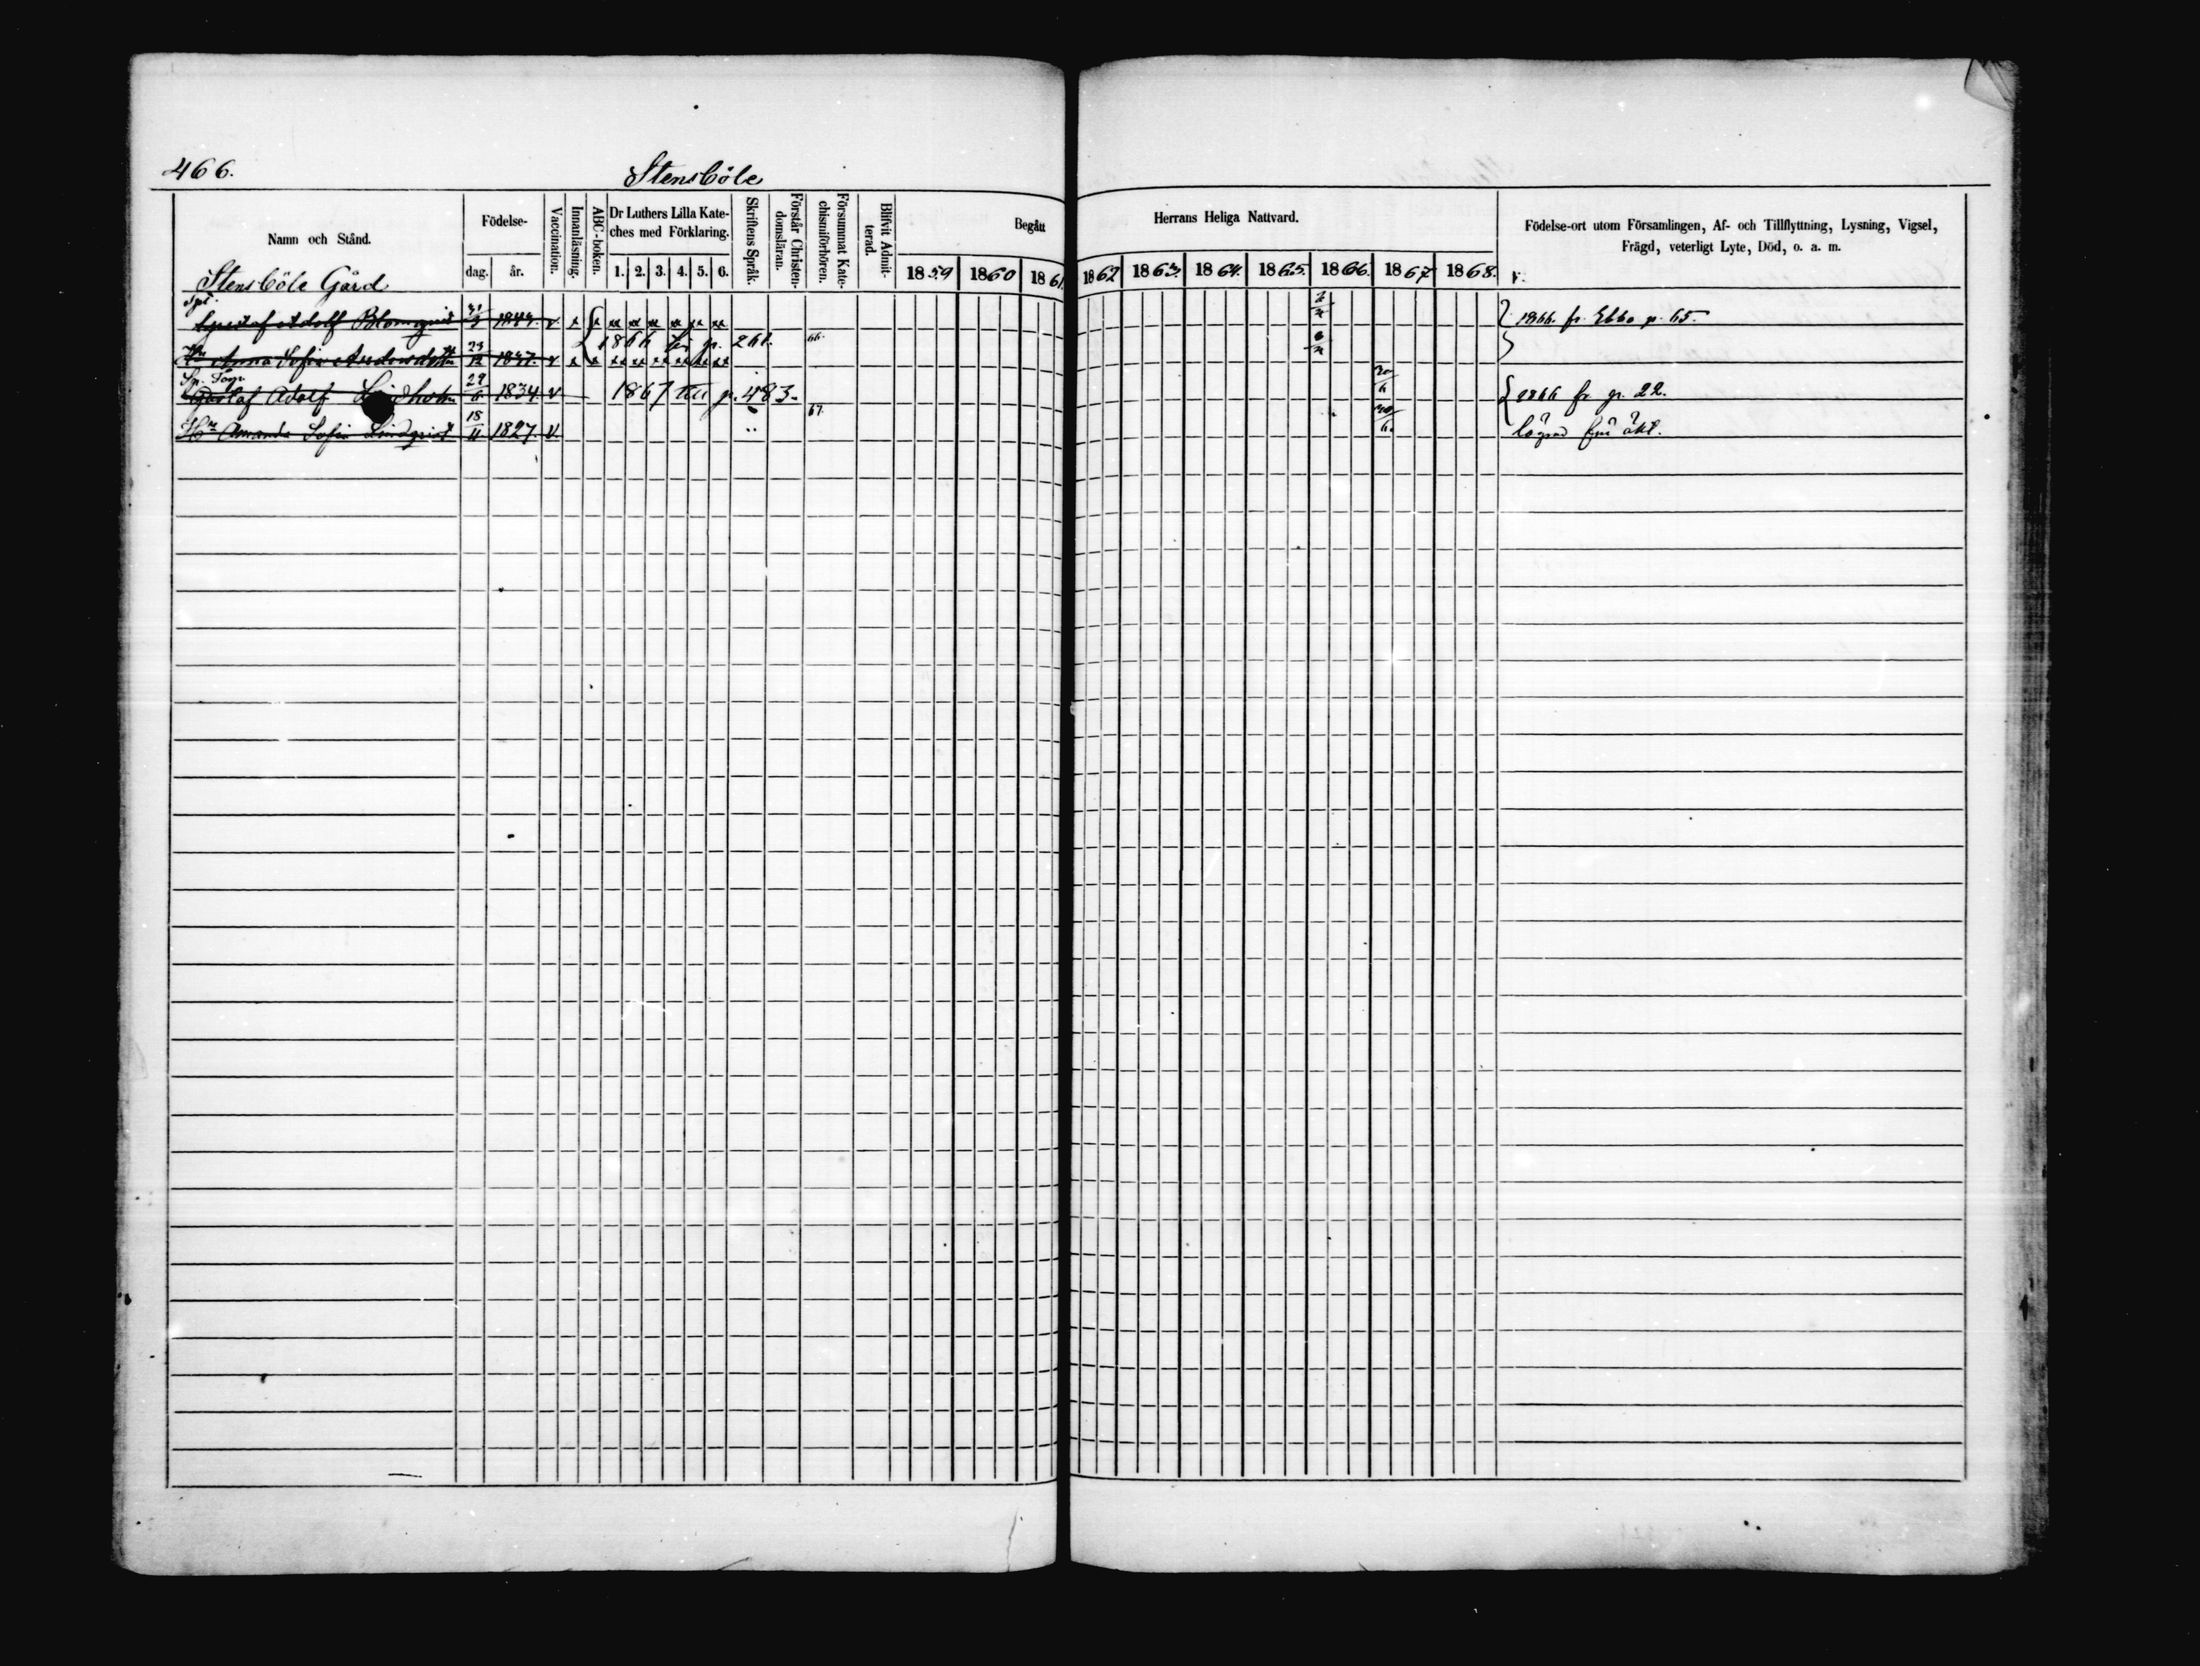 466.
Stensböle
Namn och Stånd.
Födelse-
dag.
år.
Vaccination.
Innanläsning.
ABC-boken.
Dr Luthers Lilla Kate-
ches med Förklaring.
1. 2. 3. 4. 5. 6.
Skriftens Språk.
Förstår Christen-
domsläran.
Försummat Kate-
chismiförhören.
Blifvit Admit-
terad.
Begått
Herrans Heliga Nattvard.
1859 1860 1861 1862 1863. 1864. 1865. 1866. 1867 1868.
Födelse-ort utom Församlingen, Af- och Tillflyttning, Lysning, Vigsel,
Frägd, veterligt Lyte, Död, o. a. m.
Stensböle Gård
Gustaf Adolf Blomqvist v x x 1866. fr. Ebbo p. 65.
1866 p. 261. 66.
Hu Anna Sofia Andersdotter 23/12 1837. v x x
Gustaf Adolf Lindholm 29/6 1834 v 1867 till p. 483. 1866 fr. p. 22.
67.
Hu Amanda Sofia Lindqvist 18/11 1827. v